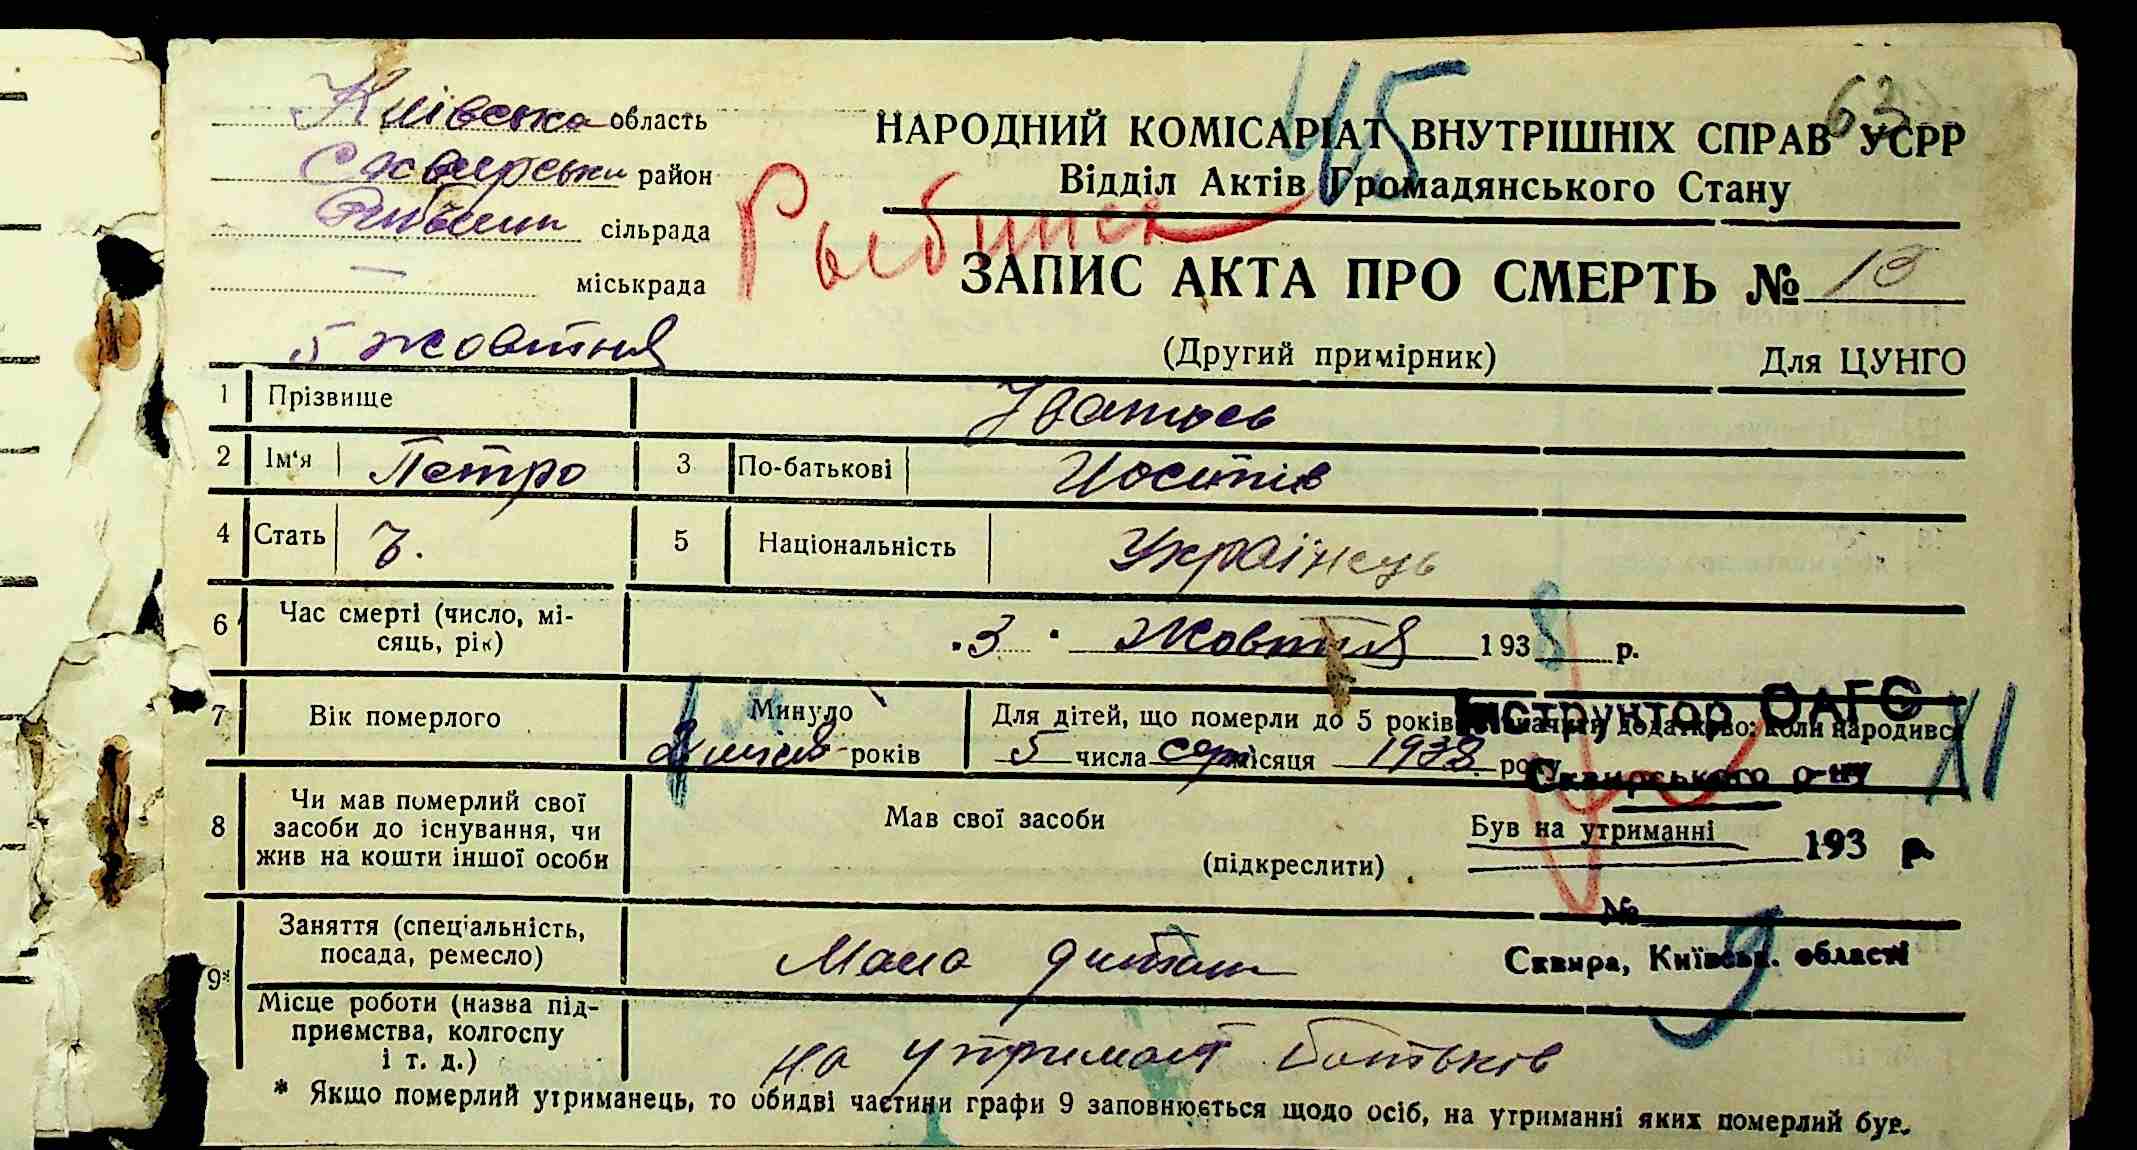 Київська область
Сквирський район
сільрада
міськрада
НАРОДНИЙ КОМІСАРІАТ ВНУТРІШНІХ СПРАВ УСРР
Відділ Актів Громадянського Стану
45
63
ЗАПИС АКТА ПРО СМЕРТЬ №
(Другий примірник) Для ЦУНГО
5 жовтня
1 Прізвище
2 Ім'я Петро 3 По-батькові
4 Стать Ч. 5 Національність Українець
6 Час смерті (число, мі-
сяць, рік) 3 жовтня 1938 р.
7 Вік померлого Минуло років
Для дітей, що померли до 5 років додатково: коли народився
5 числа серп місяця 1938 року
Інструктор ОАГС
Сквирського р-ну
XI
8 Чи мав померлий свої
засоби до існування, чи
жив на кошти іншої особи
Мав свої засоби Був на утриманні
(підкреслити)
193 р.
№
Сквира, Київськ. області
9* Заняття (спеціальність,
посада, ремесло) Мала дитина
Місце роботи (назва під-
приємства, колгоспу
і т. д.) на утриман батьків
* Якщо померлий утриманець, то обидві частини графи 9 заповнюється щодо осіб, на утриманні яких померлий був.